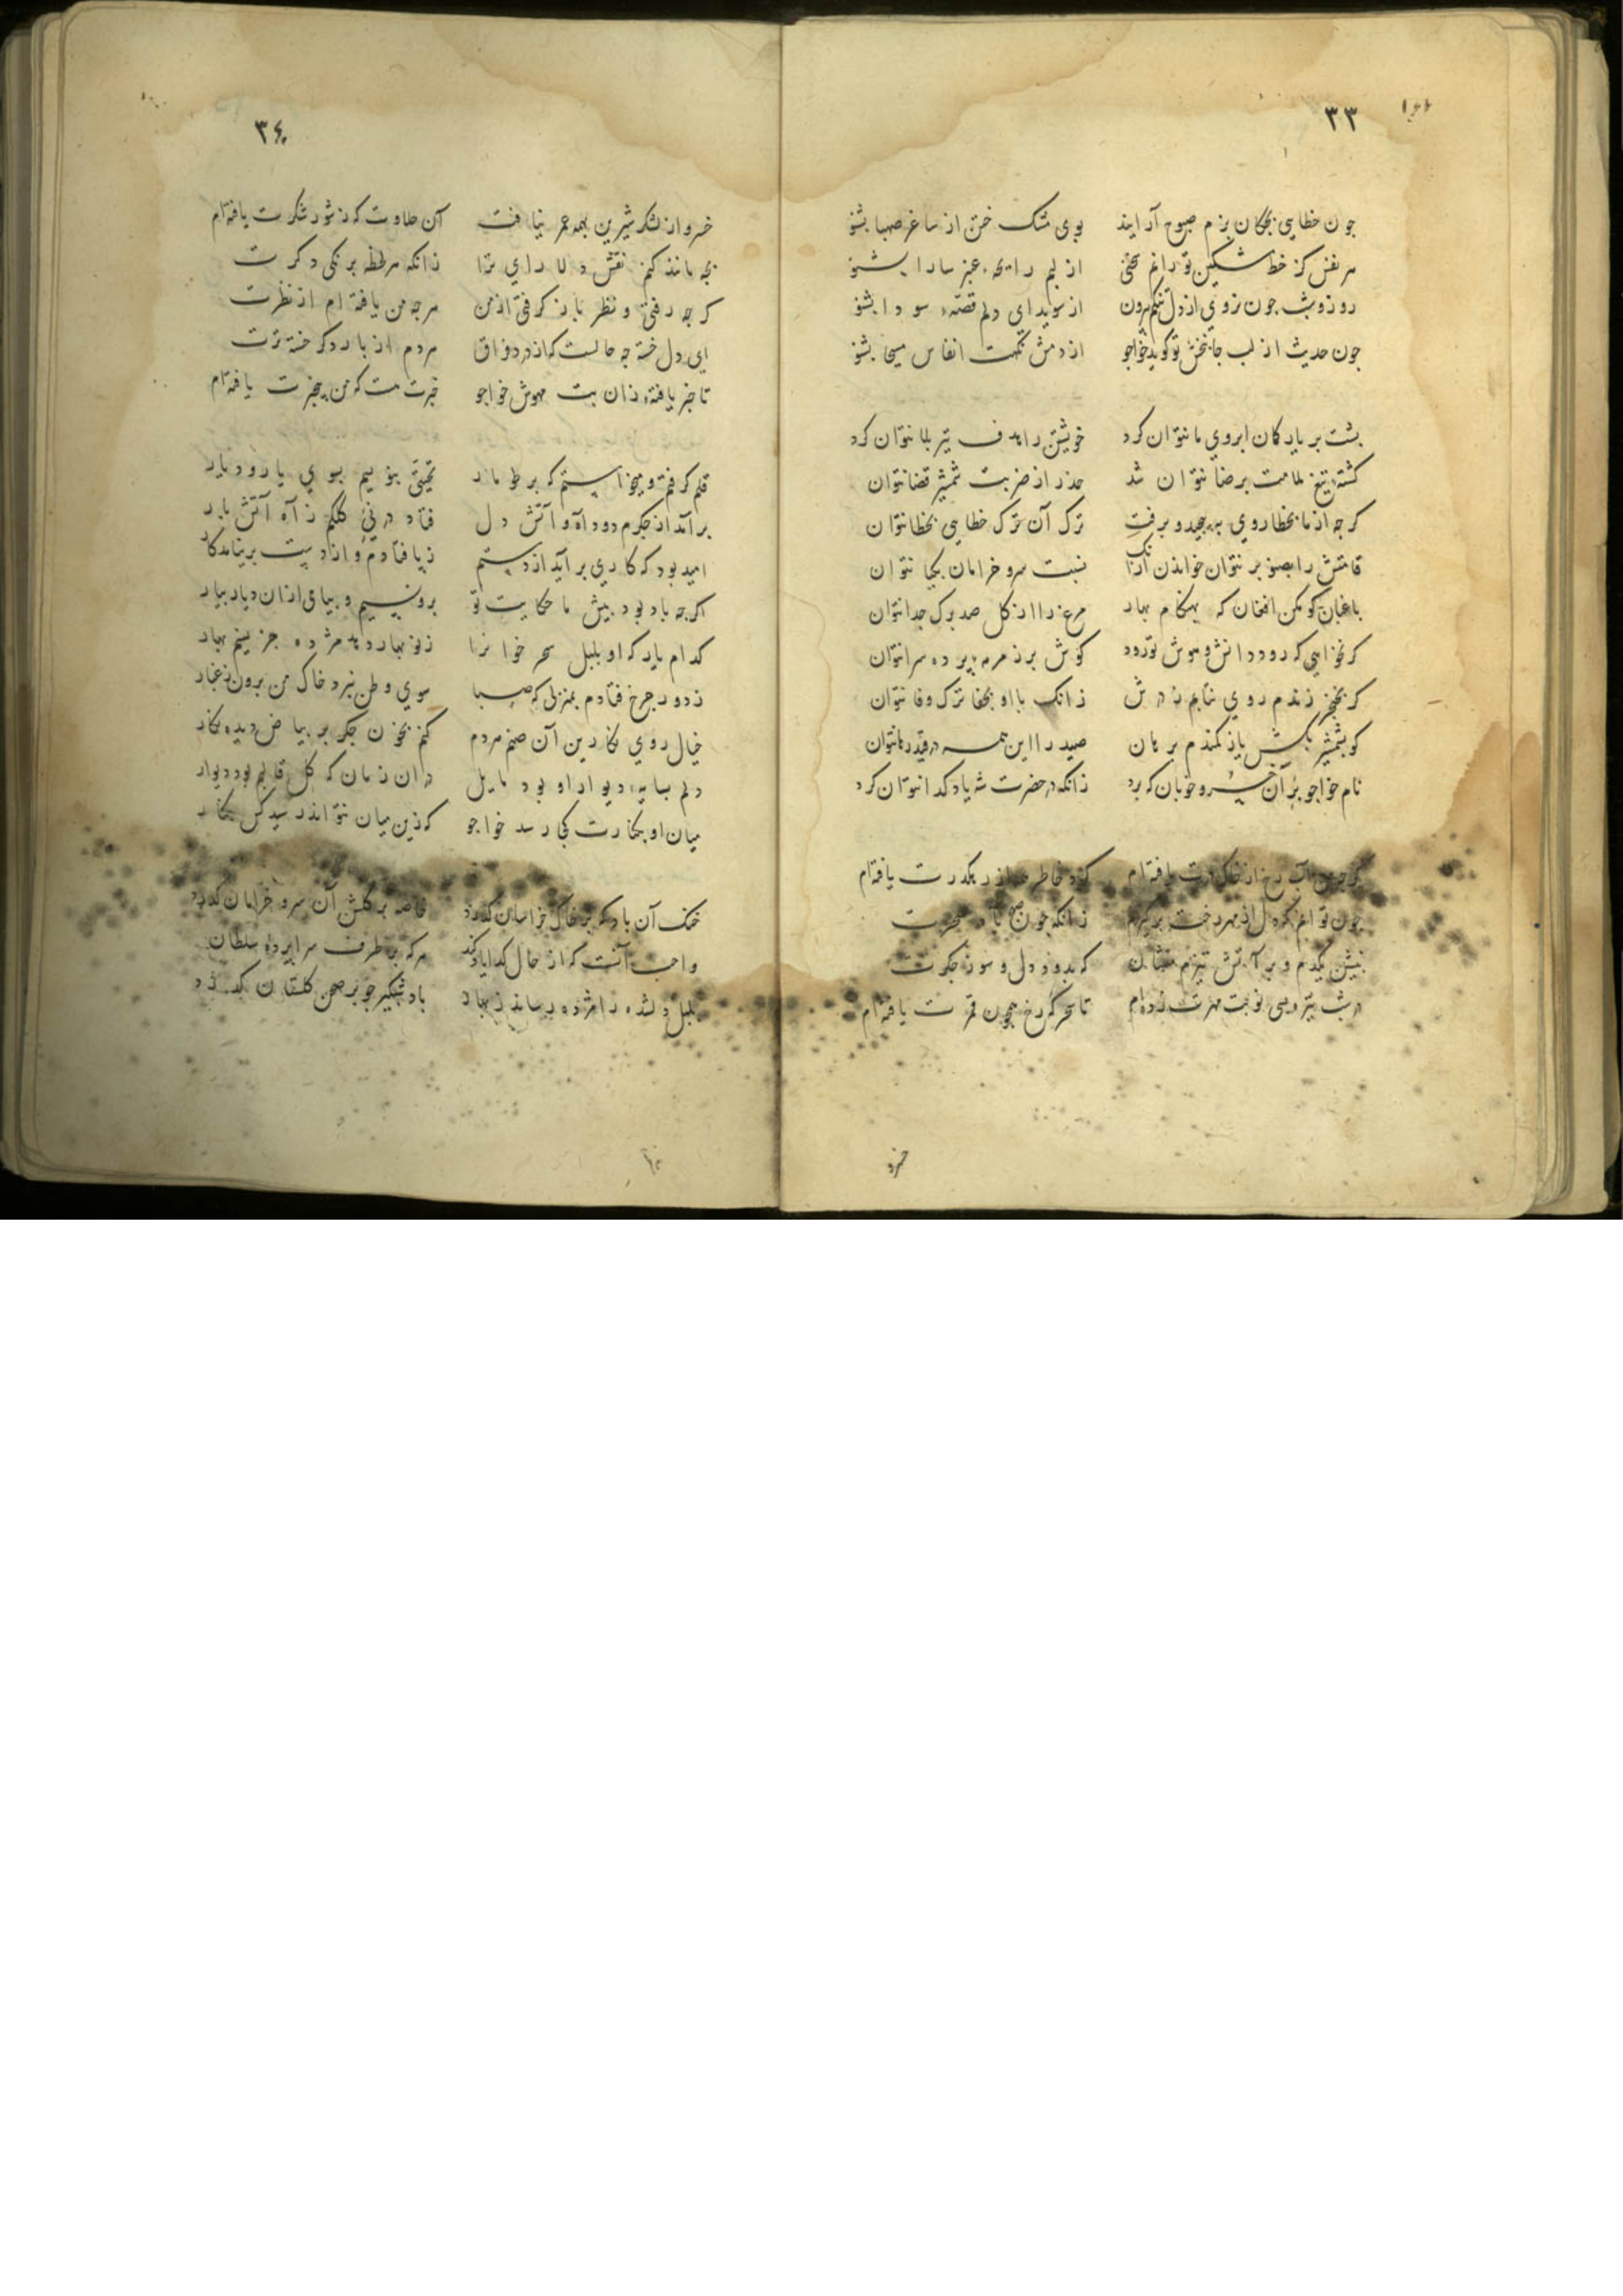 ٣٣
جون خطایی بجکان بزم صبوح آرایند بوی مشک ختن از ساغر صهبا بشنو
هر نفس کز خط مشکین تو رانم سخنی از لبم رایحهٔ عنبر سارا بشنو
روز و شب جون نروی از دل تنکم بیرون از سویدای دلم قصّهٔ سودا بشنو
جون حدیث از لب جانبخش تو کوید خواجو از دمش نکهت انفاس مسیحا بشنو
بشت بر یار کمان ابروی ما نتوان کرد خویشتن را هدف تیر بلا نتوان کرد
کشتهٔ تیغ ملامت برضا نتوان شد حذر از ضربت شمشیر قضا نتوان
کرجه از ما بخطا روی بپیجید و برفت ترک آن ترک خطایی بخطا نتوان
قامتش را بصنوبر نتوان خواندن ازآنک نسبت سرو خرامان بکیا نتوان
باغبان کو مکن افغان که بهنکام بهار مرغ را از کل صد برک جدا نتوان
کر نخواهی که رود دانش و هوش تو زود کوش بر زمرمهٔ برده سرا نتوان
کر بخنجر زندم روی نتابم ز درش زانک با او بجفا ترک وفا نتوان
کو بشمشیر بکش یا ز کمندم برهان صید را این همه در قید رها نتوان
نام خواجو بر آن خسرو خوبان که برد زانکه در حضرت شه یاد کدا نتوان کرد
کرجه من آب رخ از خاک درت یافته‌ام کرد خاطر همه از رهکذرت یافته‌ام
جون توانم که دل از مهر رخت برکیرم زانکه جون صبح باه سحرت
بنشین یکدم و بر آتش تیزم منشان که بدود دل و سوز جکرت
در شب تیره بسی نوبت مهرت زده‌ام تا سحرکه رخ همجون قمرت یافته‌ام
خسرو
٣٤
خسرو از شکر شیرین بهمه عمر نیافت آن حلاوت که ز شور شکرت یافته‌ام
بجه مانند کنم نقش دلارای ترا زانکه هر لحظه برنکی دکرت
کرجه رفتی و نظر باز کرفتی از من هرجه من یافته‌ام از نظرت
ای دل خسته جه حالست که از درد فراق هردم از بار دکر خسته‌ترت
تا خبر یافتهٔ زان بت مهوش خواجو خبرت هست که من بیخبرت یافته‌ام
قلم کرفتم و میخواستم که بر طومار تحیتی بنویسم بسوی یار و دیار
برآمد از جکرم دود آه و آتش دل فتاد در نی کلکم ز آه آتش بار
امید بود که کاری برآید از دستم ز با فتادم و از دست برنیامد کار
اکرجه باد بود بیش ما حکایت تو برو نسیم و بیامی ازان دیار بیار
کدام یار که او بلبل سحرخوانرا ز نوبهار دهد مژده جز نسیم بهار
ز دور جرخ فتادم بمنزلی که صبا سوی وطن نبرد خاک من برون ز غبار
خیال روی نکارین آن صنم هردم کنم بخون جکر بر بیاض دیده نکار
دلم بسایهٔ دیوار او بود مایل دران زمان که کل قالبم بود دیوار
میان او بکنارت کجا رسد خواجو کزین میان نتواند رسید کس بکنار
خنک آن باد که بر خاک خراسان کذرد خاصه بر کلشن آن سرو خرامان کذرد
واجب آنست که از حال کدا یاد کند هرکه بر طرف سرابردهٔ سلطان
بلبل دلشده را مژده رساند ز بهار باد شبکیر جو بر صحن کلستان کذرد